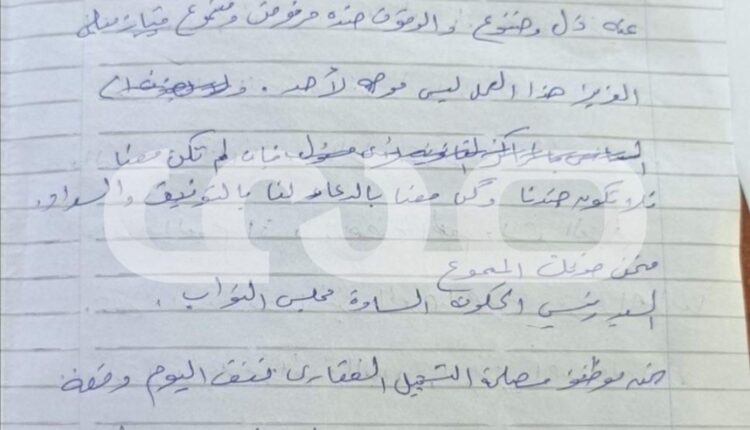 عنه ذل وخنوع والوقوف ضده مرفوض وممنوع
العزيز هذا العمل ليس موجه لأحد.
فإن لم تكن معنا
فلا تكون ضدنا وكن معنا بالدعاء لنا بالتوفيق والسداد.
نحن صوتك المسموع
السيد رئيس الحكومة السادة مجلس النواب.
نحن موظفو مصلحة التسجيل العقاري نقف اليوم وقفة